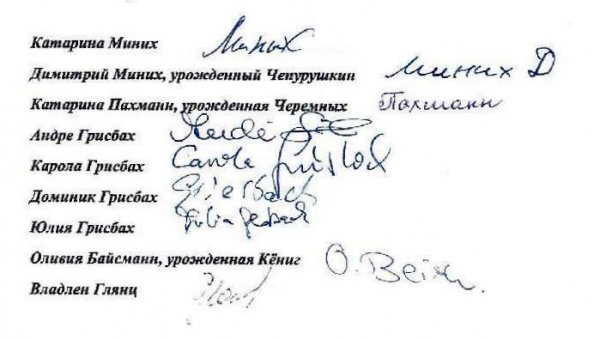 Катарина Миних Миних
Димитрий Миних, урожденный Чепурушкин Миних Д
Катарина Пахманн, урожденная Черемных Пахманн
Андре Грисбах
Карола Грисбах Carola
Доминик Грисбах Griesbach
Юлия Грисбах Julia
Оливия Байсманн, урожденная Кёниг O.
Владлен Глянц